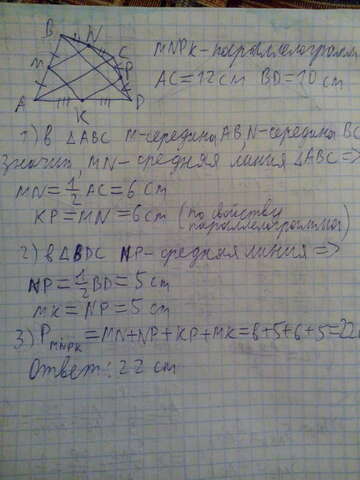 B
N
C
M
P
A
K
D
MNPK - параллелограмм
AC = 12 cm BD = 10 cm
1) в △ABC M-середина AB, N-середина BC
значит, MN - средняя линия △ABC =>
MN = 1/2 AC = 6 cm
KP = MN = 6 cm (по свойству
параллелограмма)
2) в △BDC NP - средняя линия =>
NP = 1/2 BD = 5 cm
MK = NP = 5 cm
3) P MNPK = MN + NP + KP + MK = 6 + 5 + 6 + 5 = 22
Ответ: 22 cm